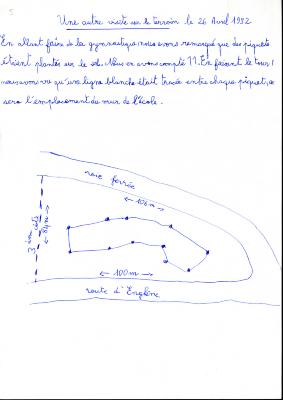 5
Une autre visite sur le terrain le 26 Avril 1992
En allant faire de la gymnastique nous avons remarqué que des piquets
étaient plantés sur le sol. Nous en avons compté 11. En faisant le tour
nous avons vu qu'une ligne blanche était tracée entre chaque piquet, ce
sera l'emplacement du mur de l'école.
voie ferrée
← 106m →
3 ème côté
← 84m →
← 100m →
route d'